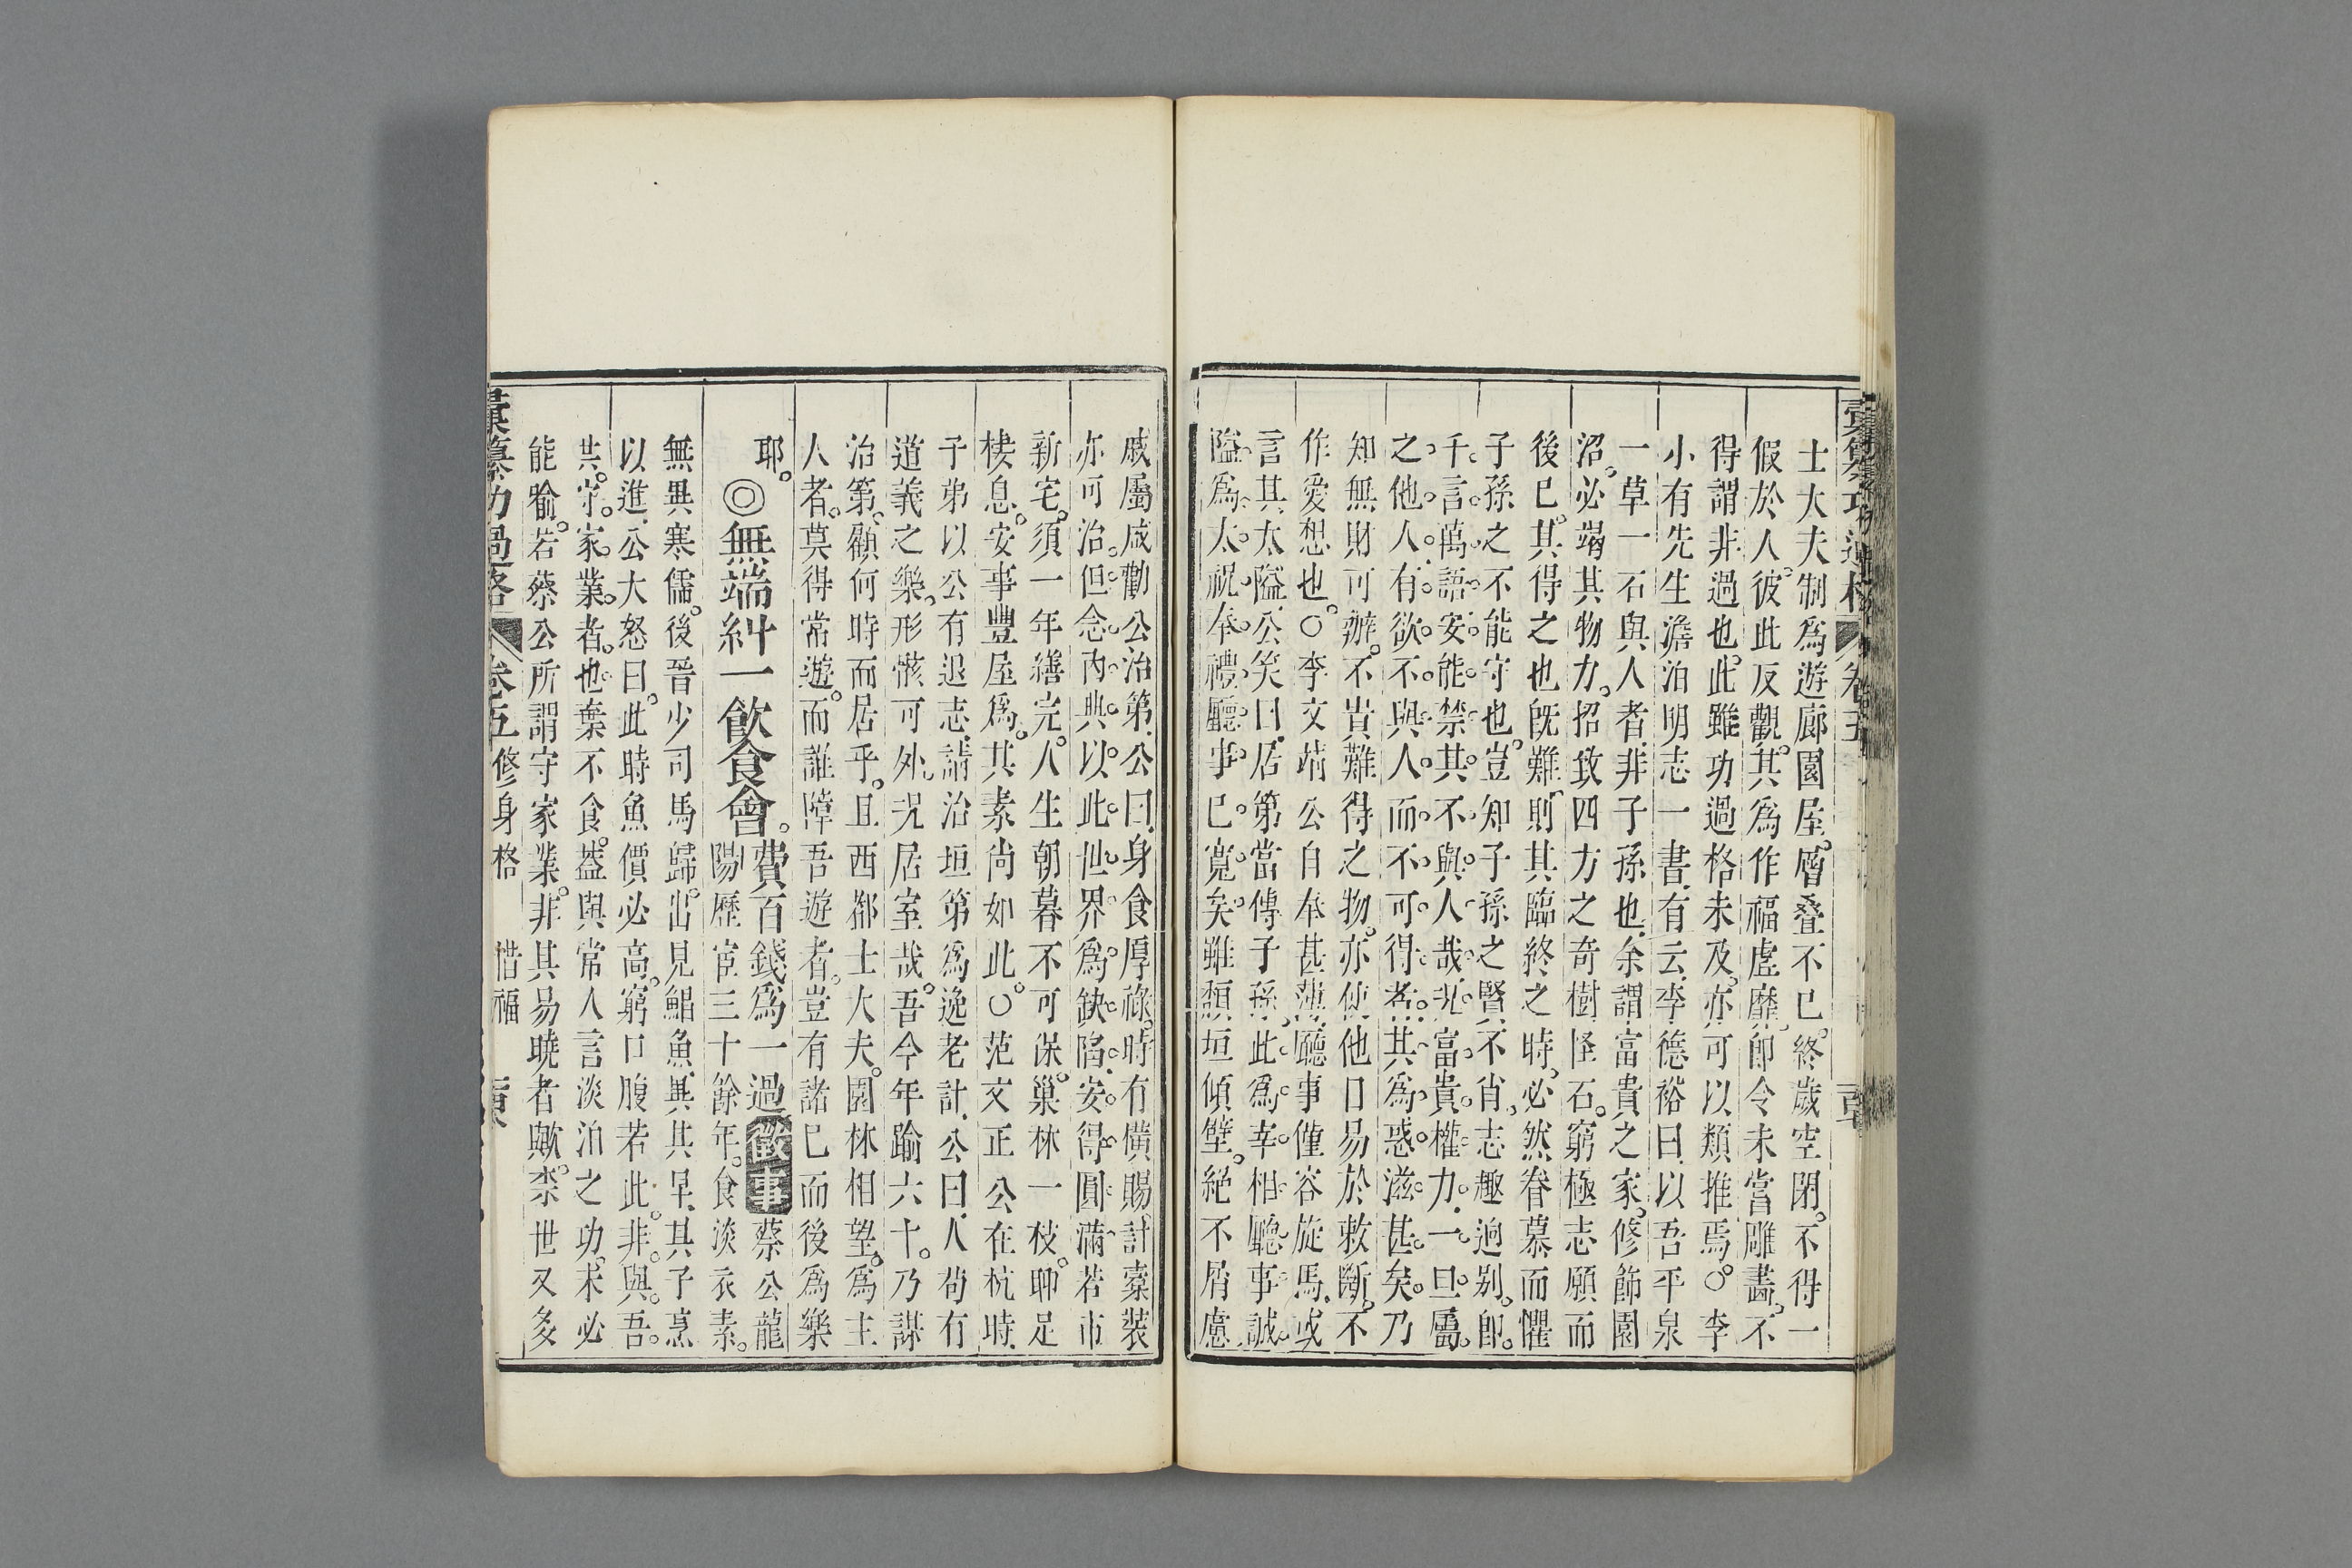 彙纂功過格 卷五
士大夫制爲遊廊園屋。層叠不已。終歲空閉。不得一
假於人。彼此反觀。其爲作福虛靡。卽令未嘗雕畵。不
得謂非過也。此雖功過格未及。亦可以類推焉。○李
小有先生澹泊明志一書。有云。李德裕曰。以吾平泉
一草一石與人者。非子孫也。余謂富貴之家。修飾園
沼。必竭其物力。招致四方之奇樹怪石。窮極志願而
後已。其得之也旣難。則其臨終之時。必然眷慕而懼
子孫之不能守也。豈知子孫之賢不肖。志趣逈别。卽
千言萬語。安能禁其不與人哉。况富貴權力。一旦屬
之他人。有欲不與人而不可得者。其爲惑滋甚矣。乃
知無財可辦。不貴難得之物。亦使他日易於敕斷。不
作愛想也。○李文靖公自奉甚薄。廳事僅容旋馬。或
言其太隘。公笑曰。居第當傳子孫。此爲宰相廳事誠
隘。爲太祝奉禮廳事。已寬矣。雖頽垣傾壁。絕不屑慮
戚屬咸勸公治第。公曰。身食厚祿。時有橫賜。計槖裝
亦可治。但念內典以此世界爲缺陷。安得圓滿。若市
新宅。須一年繕完。人生朝暮不可保。巢林一枝。聊足
棲息。安事豐屋爲。其素尚如此。○范文正公在杭時。
子弟以公有退志。請治垣第爲逸老計。公曰。人苟有
道義之樂。形骸可外。况居室哉。吾今年踰六十。乃謀
治第。顧何時而居乎。且西都士大夫。園林相望。爲主
人者。莫得常遊。而誰障吾遊者。豈有諸已而後爲樂
耶。
◎無端糾一飲食會。費百錢爲一過 徵事 蔡公龍
陽歷宦三十餘年。食淡衣素。
無異寒儒。後晉少司馬歸。出見鯧魚。異其早。其子烹
以進。公大怒曰。此時魚價必高。窮口腹若此。非與吾
共守家業者也。棄不食。葢與常人言淡泊之功。未必
能喻。若蔡公所謂守家業。非其易曉者歟。柰世又多
彙纂功過格 卷五 修身格 惜福